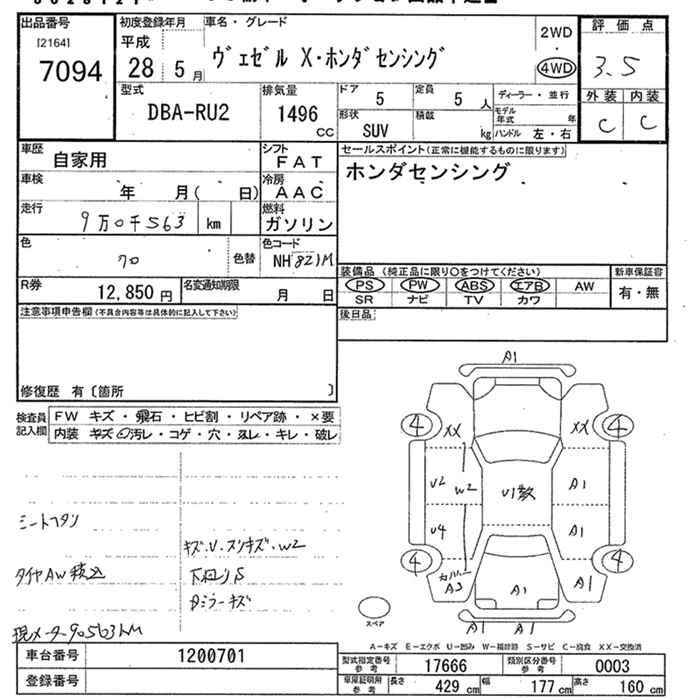 出品番号 初度登録年月 車名・グレード
[2164] 平成
7094 28 5月 ヴェゼル X・ホンダセンシング
2WD
4WD
評価点
3.5
外装 内装
C C
型式 排気量 ドア 定員 ディーラー・並行
DBA-RU2 1496 cc 5 5 人
モデル年式 年
形状 積載
SUV kg ハンドル 左・右
車歴 シフト セールスポイント(正常に機能するものに限ります)
自家用 FAT ホンダセンシング
車検 冷房
年 月( 日) AAC
走行 燃料
9万0千563 km ガソリン
色 色替 色コード
クロ NH 821M
装備品(純正品に限り○をつけてください) 新車保証書
PS PW ABS エアB AW 有・無
SR ナビ TV カワ
R券 名変通知期限
12,850円 月 日
後日品
注意事項申告欄(不具合内容等は具体的に記入して下さい)
修復歴 有〔箇所 〕
検査員記入欄
FW キズ・飛石・ヒビ割・リペア跡・×要
内装 キズ・汚レ・コゲ・穴・スレ・キレ・破レ
キズ・U・スリキズ・W2
タイヤAW積込
下回りS
現メーター90563kM
A1
4 XX XX 4
U2 W2 U1数 A1
U4 A1
4 カバー A3 A1 A1 4
A1 A1
スペア
A-キズ E-エクボ U-凹み W-補修跡 S-サビ C-腐食 XX-交換済
車台番号 1200701
登録番号
型式指定番号参考 17666 類別区分番号参考 0003
車庫証明用参考 長さ 429 cm 幅 177 cm 高さ 160 cm